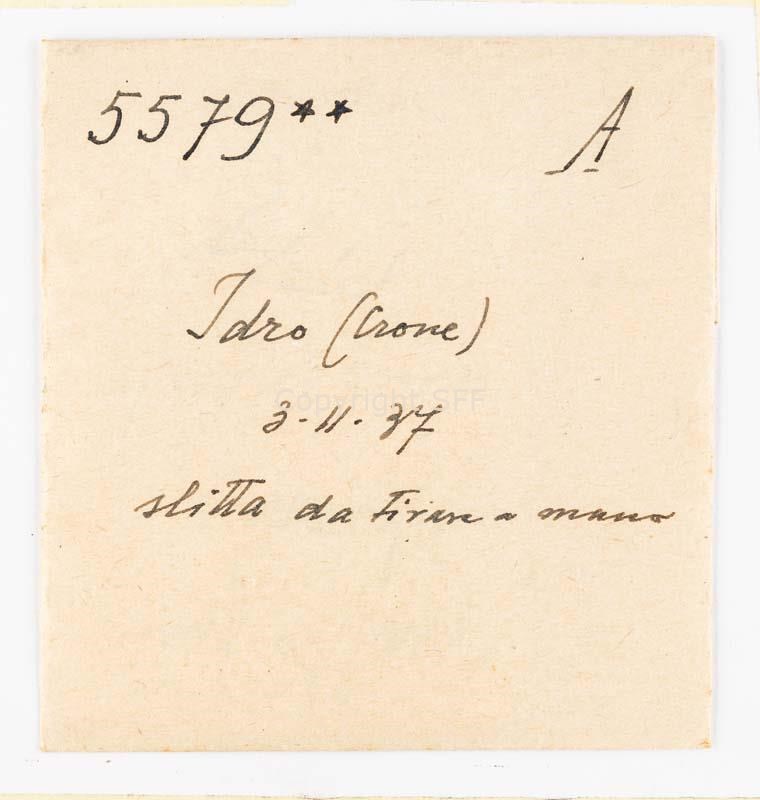 5579** A
Idro (Crone)
Copyright SFF
3·11·37
slitta da tirare a mano